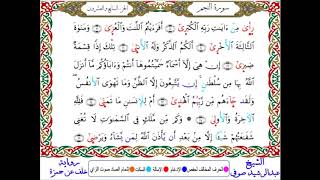 سورة النجم الجزء السابع والعشرون
رَأَىٰ مِنْ ءَايَٰتِ رَبِّهِ ٱلْكُبْرَىٰٓ أَفَرَءَيْتُمُ ٱللَّٰتَ وَٱلْعُزَّىٰ وَمَنَوٰةَ
ٱلثَّالِثَةَ ٱلْأُخْرَىٰٓ أَلَكُمُ ٱلذَّكَرُ وَلَهُ ٱلْأُنثَىٰ تِلْكَ إِذًا قِسْمَةٌ
ضِيزَىٰٓ إِنْ هِيَ إِلَّآ أَسْمَآءٌ سَمَّيْتُمُوهَآ أَنتُمْ وَءَابَآؤُكُم مَّآ أَنزَلَ
ٱللَّهُ بِهَا مِن سُلْطَٰنٍ إِن يَتَّبِعُونَ إِلَّا ٱلظَّنَّ وَمَا تَهْوَى ٱلْأَنفُسُ
وَلَقَدْ جَآءَهُم مِّن رَّبِّهِمُ ٱلْهُدَىٰٓ أَمْ لِلْإِنسَٰنِ مَا تَمَنَّىٰ فَلِلَّهِ
ٱلْأَخِرَةُ وَٱلْأُولَىٰ وَكَم مِّن مَّلَكٍ فِي ٱلسَّمَٰوَٰتِ لَا تُغْنِي
شَفَٰعَتُهُمْ شَيْـًٔا إِلَّا مِنۢ بَعْدِ أَن يَأْذَنَ ٱللَّهُ لِمَن يَشَآءُ وَيَرْضَىٰٓ
الشيخ عبدالرشيد صوفي
رواية خلف عن حمزة